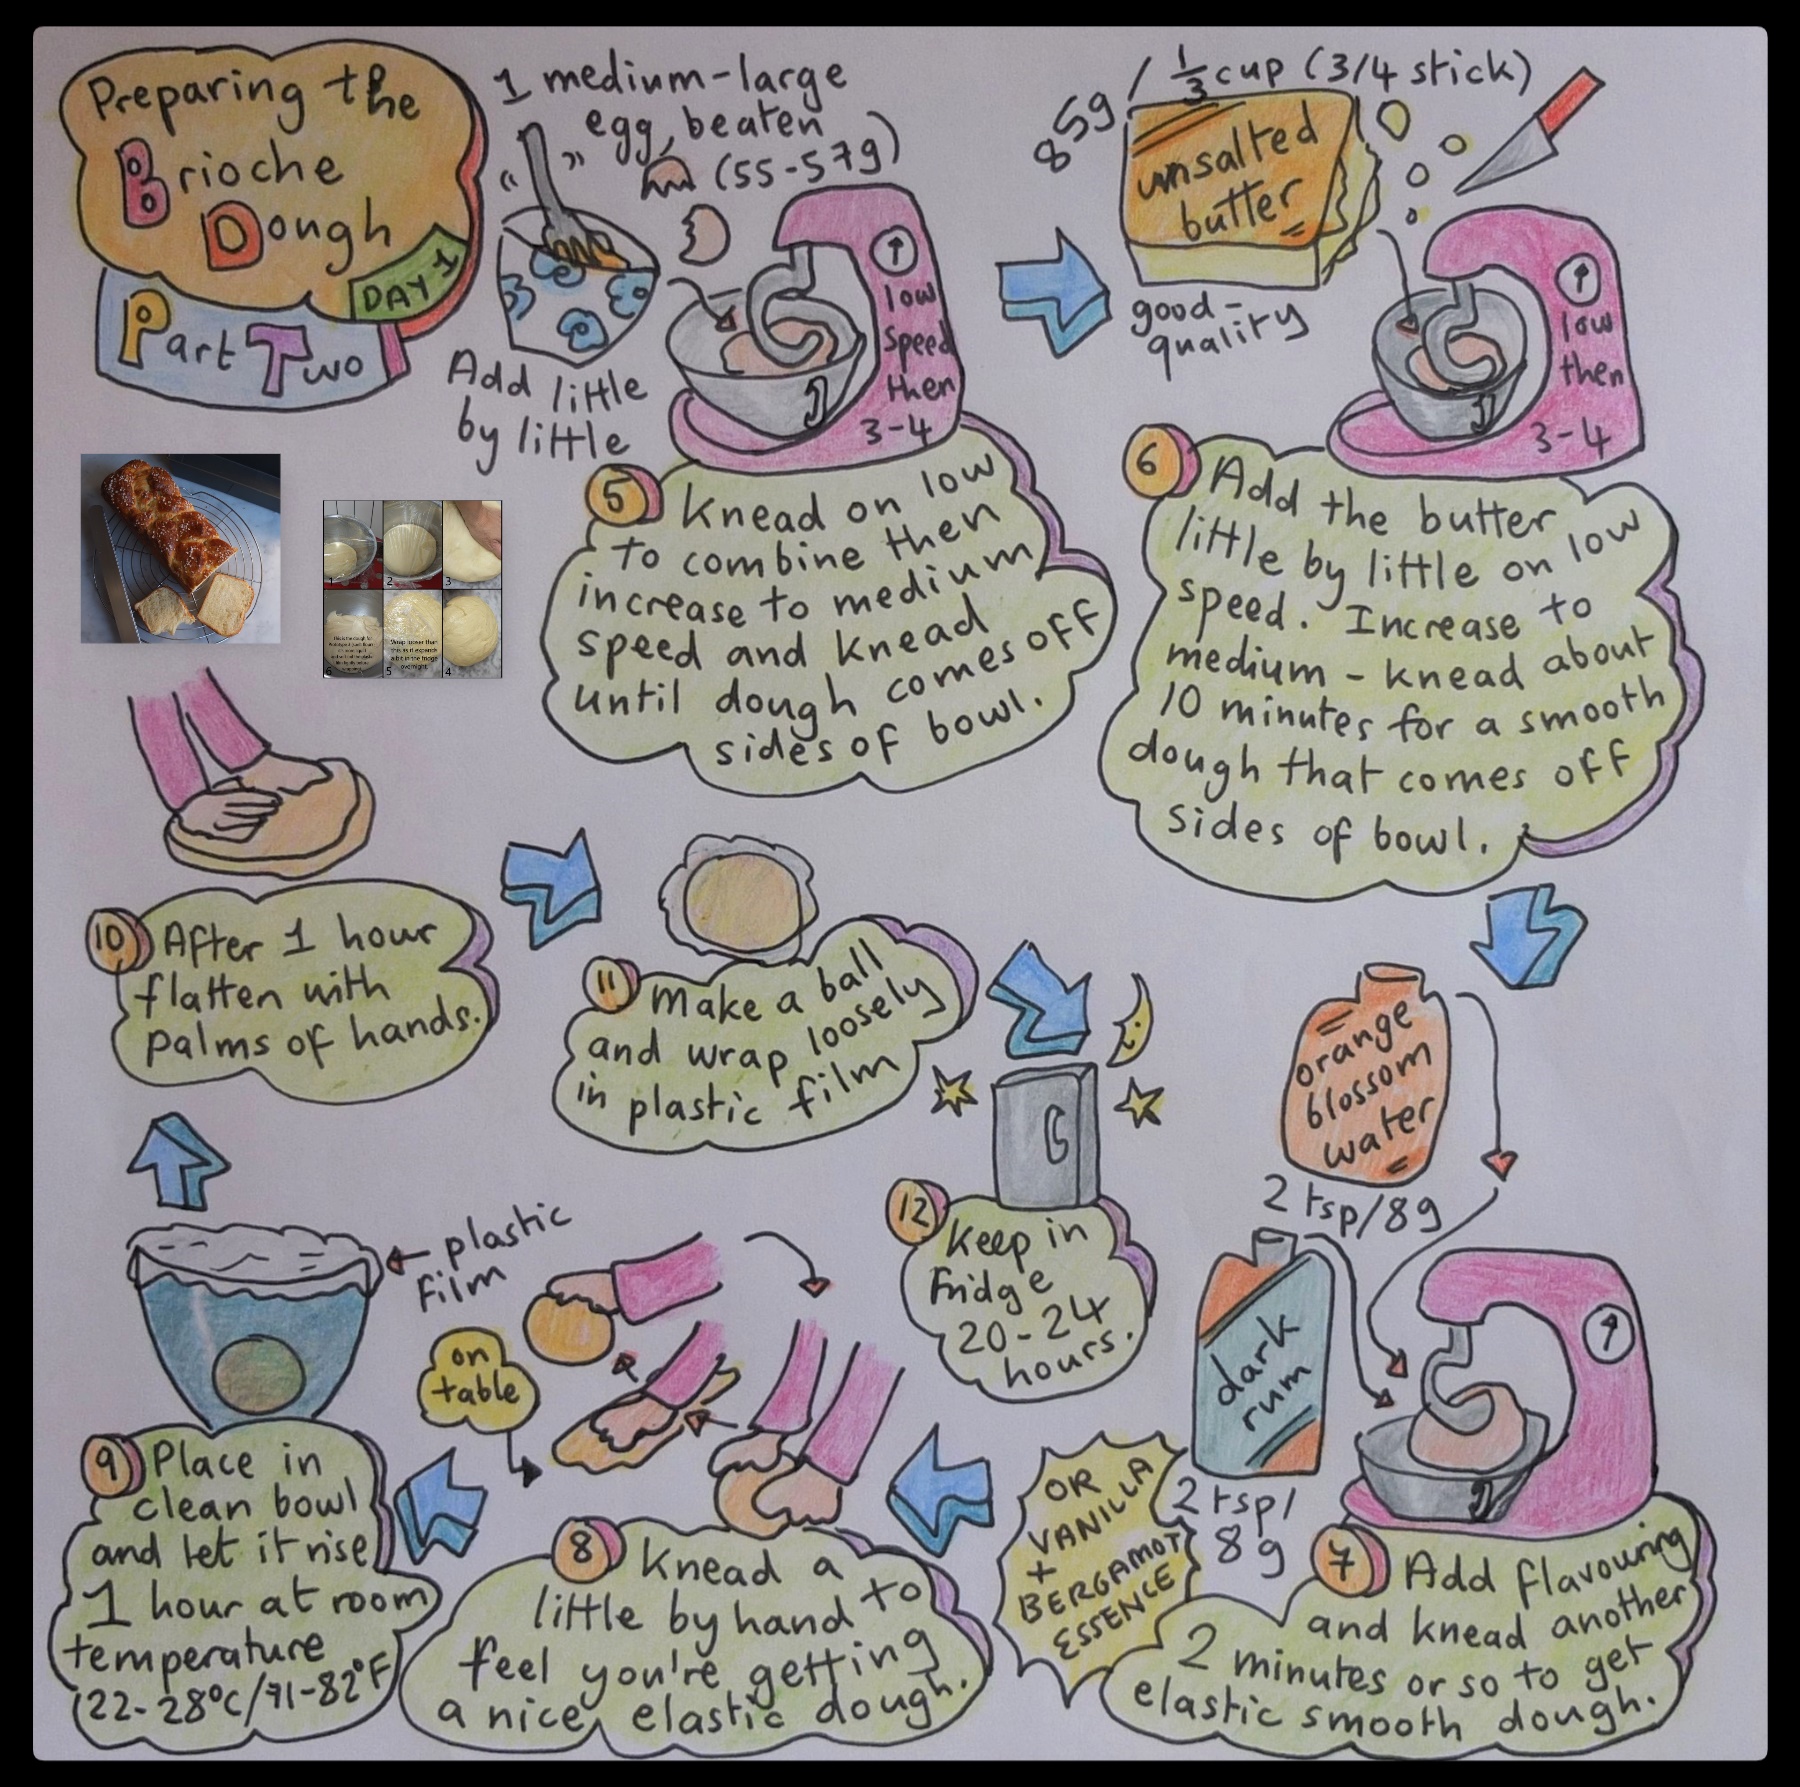 Preparing the
Brioche
Dough
DAY 1
Part Two
1 medium-large
egg, beaten
(55-57g)
Add little
by little
low
speed
then
3-4
5
Knead on low
to combine then
increase to medium
speed and knead
until dough comes off
sides of bowl.
85g / 1/3 cup (3/4 stick)
unsalted
butter
good-
quality
low
then
3-4
6
Add the butter
little by little on low
speed. Increase to
medium - knead about
10 minutes for a smooth
dough that comes off
sides of bowl.
orange
blossom
water
2 tsp/8g
dark
rum
2 tsp/
8g
OR
VANILLA
+
BERGAMOT
ESSENCE
7
Add flavouring
and knead another
2 minutes or so to get
elastic smooth dough.
on
table
8
Knead a
little by hand to
feel you're getting
a nice, elastic dough.
plastic
film
9
Place in
clean bowl
and let it rise
1 hour at room
temperature
(22-28°C/71-82°F
10
After 1 hour
flatten with
palms of hands.
11
Make a ball
and wrap loosely
in plastic film
12
Keep in
fridge
20-24
hours.
1
2
3
6
5
4
Wrap looser than
this as it expands
a bit in the fridge
overnight